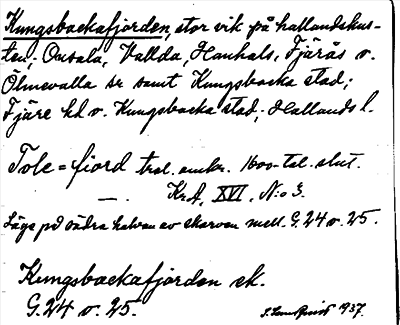 Kungsbackafjorden, stor vik på hallandskus-
ten; Onsala, Vallda, Hanhals, Fjärås o.
Ölmevalla sr samt Kungsbacka stad;
Fjäre hd o. Kungsbacka stad; Hallands l.
Tole=fiord trol. omkr. 1600-tal. slut.
— . KrA, XVI, N:o 3.
Läge på södra halvan av skarven mell. G.24 o. 25.
Kungsbackafjorden ek.
G.24 o. 25.
1937.